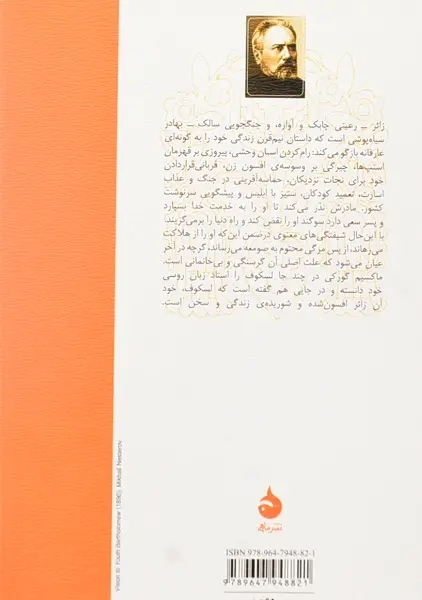 زائر ــ رعیتی چابک و آواره، و جنگجویی سالک ــ بهادر
سیاه‌پوشی است که داستان نیم‌قرن زندگی خود را به گونه‌ای
عارفانه بازگو می‌کند: رام‌کردن اسبان وحشی، پیروزی بر قهرمان
استپ‌ها، چیرگی بر وسوسه‌ی افسون زن، قربانی‌قراردادن
خود برای نجات نزدیکان، حماسه‌آفرینی در جنگ و عذاب
اسارت، تعمید کودکان، ستیز با ابلیس و پیشگویی سرنوشت
کشور. مادرش نذر می‌کند تا او را به خدمت خدا بسپارد
و پسر سعی دارد سوگند او را نقض کند و راه دنیا را برمی‌گزیند.
با این‌حال شیفتگی‌های معنوی درضمن این‌که او را از هلاکت
می‌رهاند، از پس مرگی محتوم به صومعه می‌رساند، گرچه در آخر
عیان می‌شود که علت اصلی آن گرسنگی و بی‌خانمانی است.
ماکسیم گورکی در چند جا لسکوف را استاد زبان روسی
خود دانسته و در جایی هم گفته است که لسکوف، خود
آن زائر افسون‌شده و شوریده‌ی زندگی و سخن است.
Vision to Youth Bartholomew (1890), Mikhail Nesterov
نشر ماهی
ISBN 978-964-7948-82-1
9789647948821